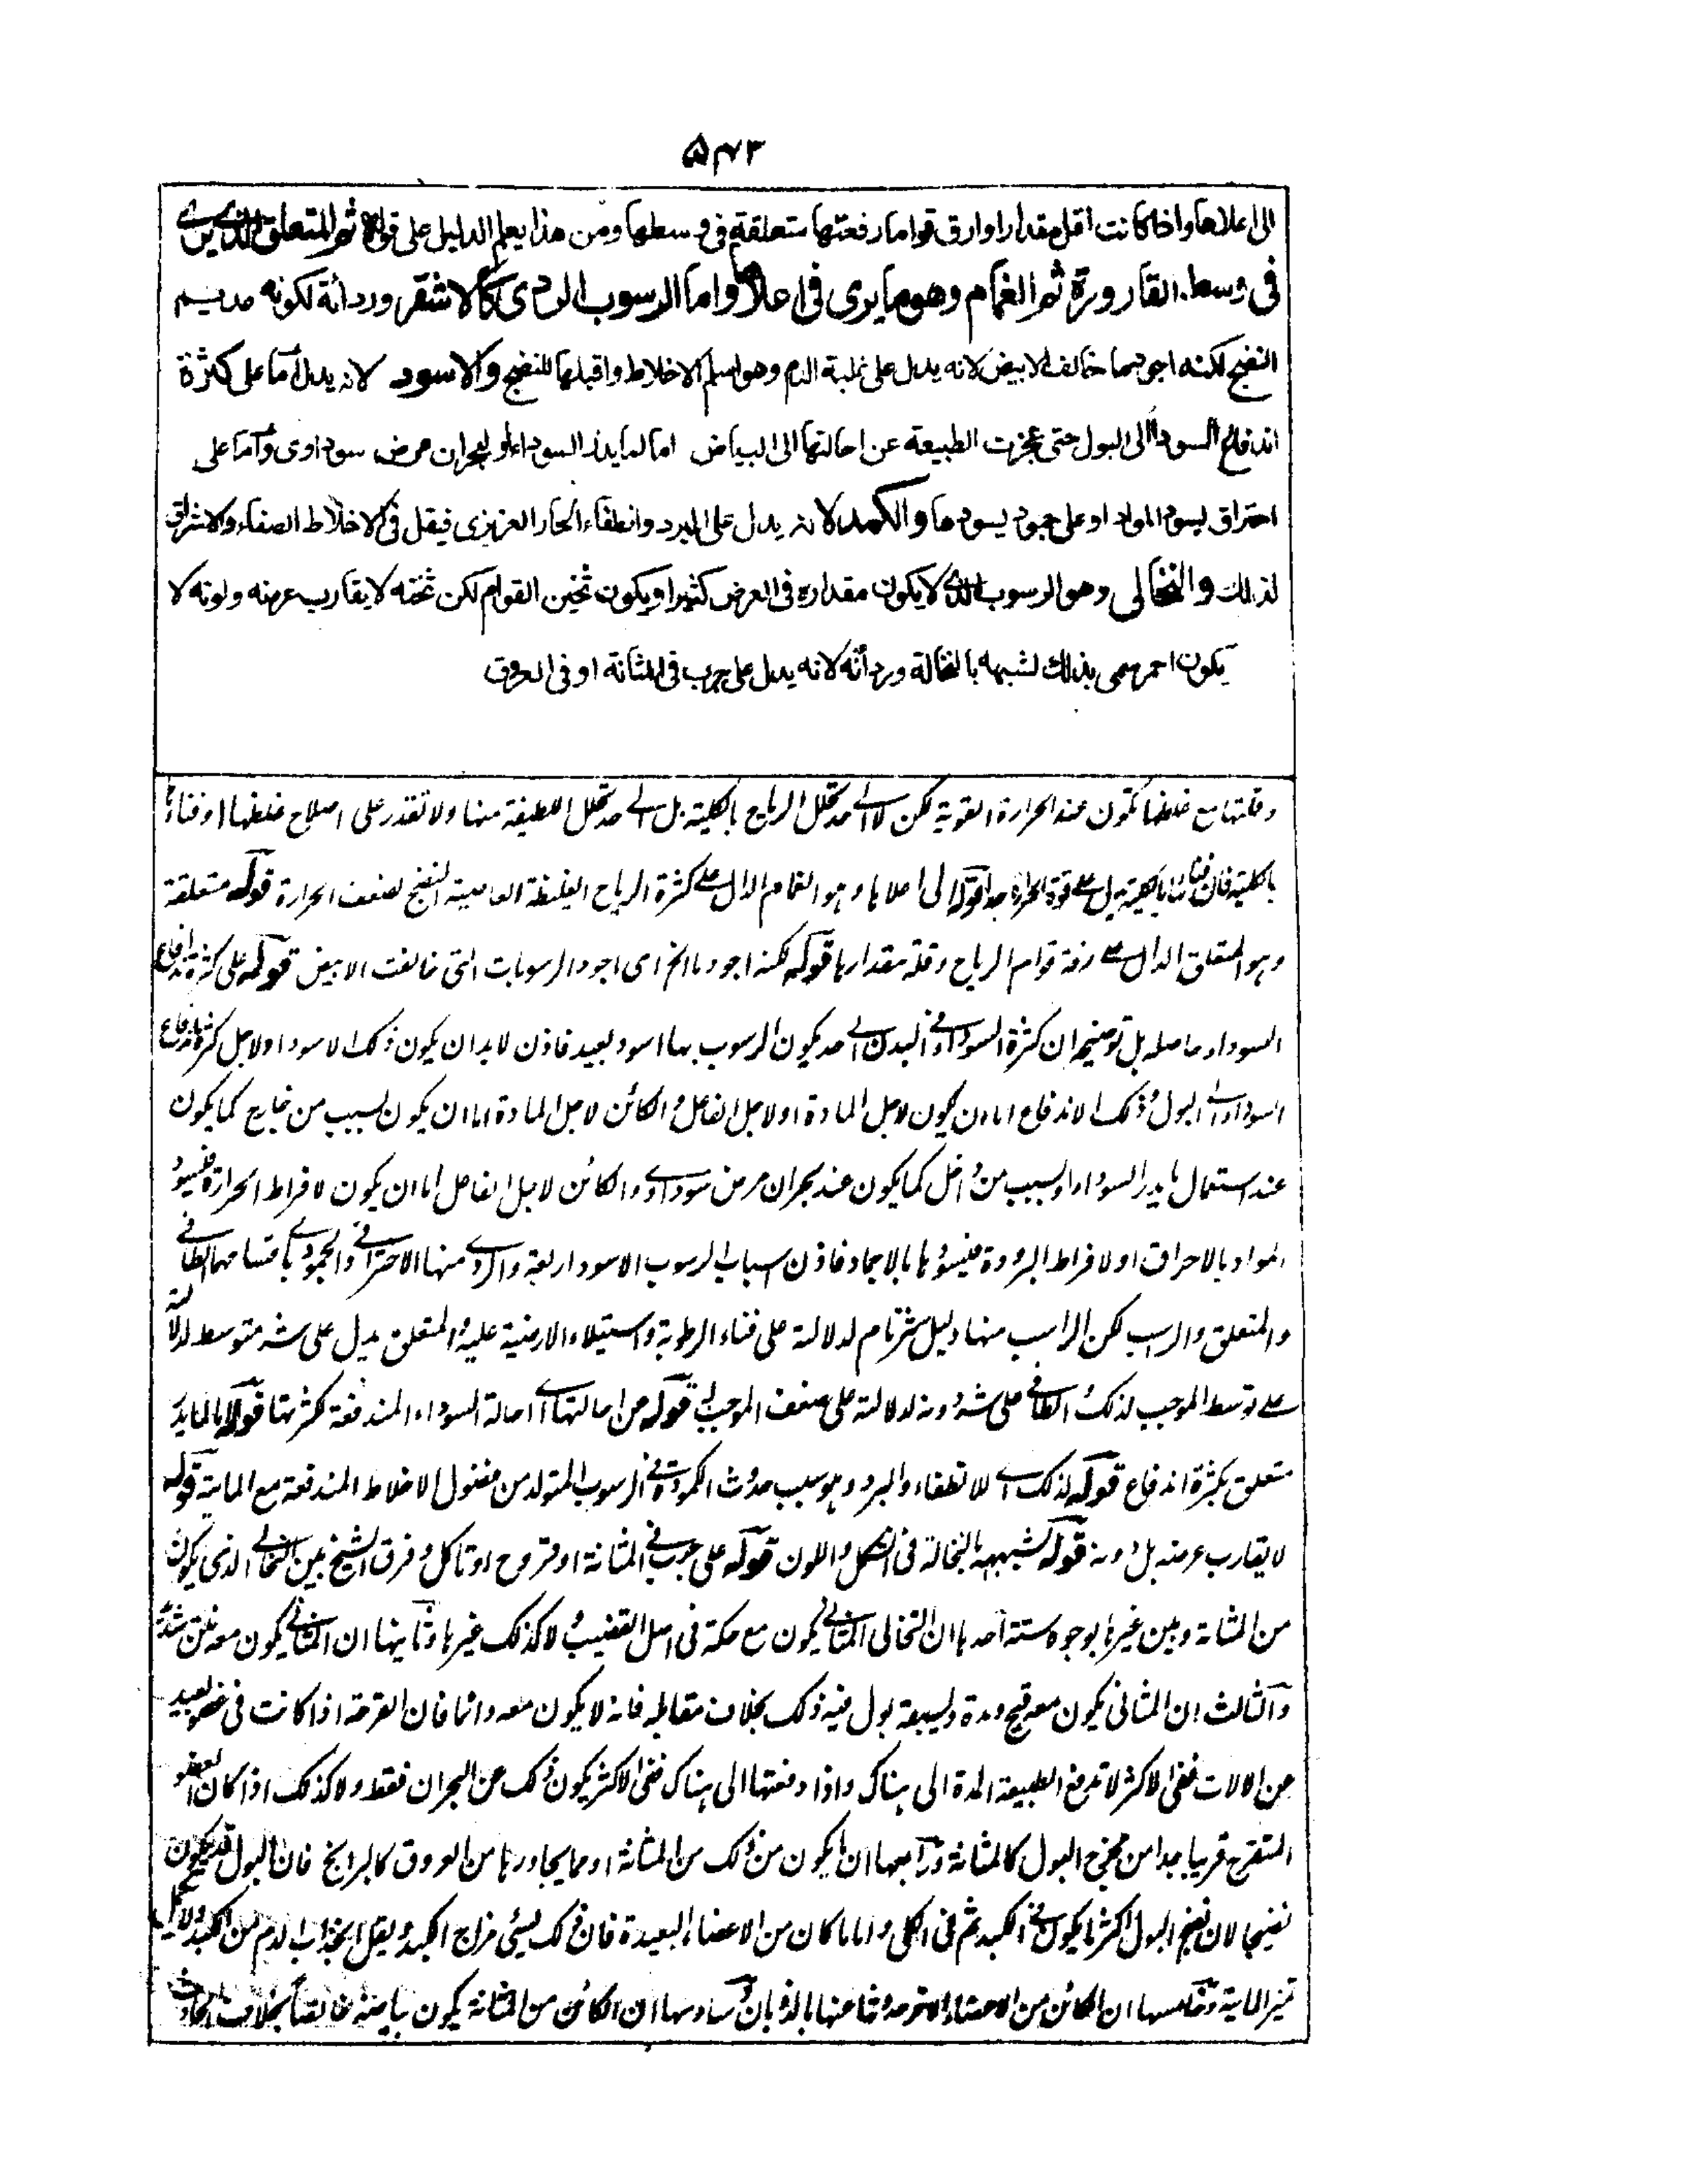 ۵۴۳
الى اعلاها واذا كانت اقل مقدارا وارق قواما رفعتها متعلقة فى وسطها ومن هذا يعلم الدليل على قوله ثم المتعلق الذى يرى
فى وسط القارورة ثم الغمام وهو ما يرى فى اعلاه واما الرسوب الردى كالاشقر وردائة لكونه عديم
النضج لكنه اجود ما خالف الابيض لانه يدل على غلبة الدم وهو اسلم الاخلاط واقبلها للنضج والاسود لانه يدل اما على كثرة
اندفاع السوداء الى البول حتى عجزت الطبيعة عن احالتها الى البياض اما لما يدر السوداء او لبحران مرض سوداوى واما على
احتراق يسود المواد او على جمود يسودها والكمد لانه يدل على البرد وانطفاء الحار الغريزى فيقل فى الاخلاط الصفاء والاشراق
لذلك والنخالى وهو الرسوب الذى لا يكون مقداره فى العرض كثيرا ويكون ثخين القوام لكن ثخنه لا يقارب عرضه ولونه لا
يكون احمر سمى بذلك لشبهه بالنخالة وردأته لانه يدل على جرب فى المثانة او فى العروق
وقلتها مع غلظها تكون عند الحرارة القوية لكن لا الى حد تحلل الرياح بالكلية بل الى حد تحلل اللطيفة منها ولا تقدر على اصلاح غلظها او فناء
بالكلية فان فنائها بالكلية يدل على قوة الحرارة جدا قوله الى اعلاها وهو الغمام الدال على كثرة الرياح الغليظة العاصية النضج لضعف الحرارة قوله متعلقة
وهو المتعلق الدال على رقة قوام الرياح وقلة مقدارها قوله لكنه اجود ما الخ اى اجود الرسوبات التى خالفت الابيض قوله على كثرة اندفاع
السوداء حاصله بل توضيحه ان كثرة السوداء فى البدن الى حد يكون الرسوب بها اسود بعيد فاذن لا بد ان يكون ذلك الاسود اولا لاجل كثرة اندفاع
السوداء الى البول وذلك الاندفاع اما ان يكون لاجل المادة او لاجل الفاعل والكائن لاجل المادة اما ان يكون لسبب من خارج كما يكون
عند استعمال ما يدر السوداء او لسبب من داخل كما يكون عند بحران مرض سوداوى والكائن لاجل الفاعل اما ان يكون لافراط الحرارة فيسود
المواد بالاحراق او لافراط البرودة فيسودها بالاجماد فاذن اسباب الرسوب الاسود اربعة والردى منها الاحتراقى والجمودى باقسامهما الطافى
والمتعلق والراسب لكن الراسب منها دليل شر تام لدلالته على فناء الرطوبة واستيلاء الارضية عليه والمتعلق يدل على شر متوسط لدلالته
على توسط الموجب لذلك والطافى على شر دونه لدلالته على ضعف الموجب له قوله عن احالتها اى احالة السوداء المندفعة لكثرتها قوله اما لما يدر
متعلق بكثرة اندفاع قوله لذلك اى للانطفاء والبرد وهو سبب حدوث الكمودة فى الرسوب المتولد من فضول الاخلاط المندفعة مع المائية قوله
لا يقارب عرضه بل دونه قوله لشبهه بالنخالة فى الشكل واللون قوله على جرب فى المثانة او قروح او تاكل وفرق الشيخ بين النخالى الذى يكون
من المثانة وبين غيرها بوجوه ستة احدها ان النخالى المثانى يكون مع حكة فى اصل القضيب ولا كذلك غيرها وثانيها ان المثانى يكون معه نتن شديد
والثالث ان المثانى يكون معه قيح ومدة ويسبقه بول فيه ذلك بخلاف مقابله فانه لا يكون معه دائما فان القرحة اذا كانت فى عضو بعيد
عن الالات ففى الاكثر لا تدفع الطبيعة المدة الى هناك واذا دفعتها الى هناك ففى الاكثر يكون ذلك عن البحران فقط ولا كذلك اذا كان العضو
المتقرح قريبا جدا من مخرج البول كالمثانة ورابعها ان ما يكون من ذلك من المثانة او مما يجاورها من العروق كالبرابخ فان البول قد يكون معه
نضيجا لان نضج البول اكثر ما يكون فى الكبد ثم فى الكلى واما ما كان من الاعضاء البعيدة فان ذلك يسيئ مزاج الكبد ويقل انجذاب الدم من الكبد
تميز المائية وخامسها ان الكائن من الاعضاء وسادسها ان الكائن من المثانة يكون بياضه خالصا بخلاف